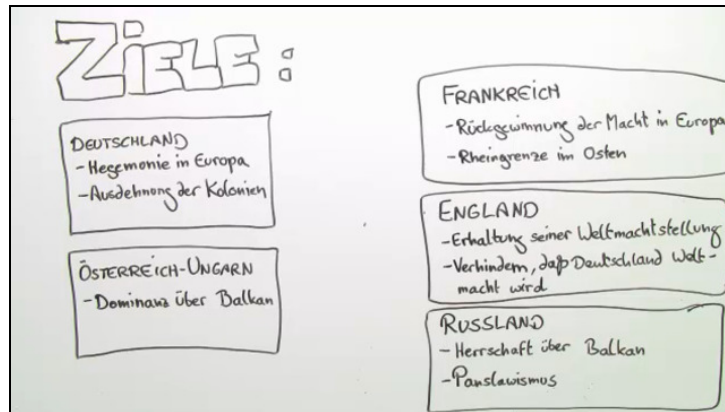 ZIELE:
DEUTSCHLAND
-Hegemonie in Europa
-Ausdehnung der Kolonien
ÖSTERREICH-UNGARN
-Dominanz über Balkan
FRANKREICH
-Rückgewinnung der Macht in Europa
-Rheingrenze im Osten
ENGLAND
-Erhaltung seiner Weltmachtstellung
-Verhindern, daß Deutschland Welt-
macht wird
RUSSLAND
-Herrschaft über Balkan
-Panslawismus